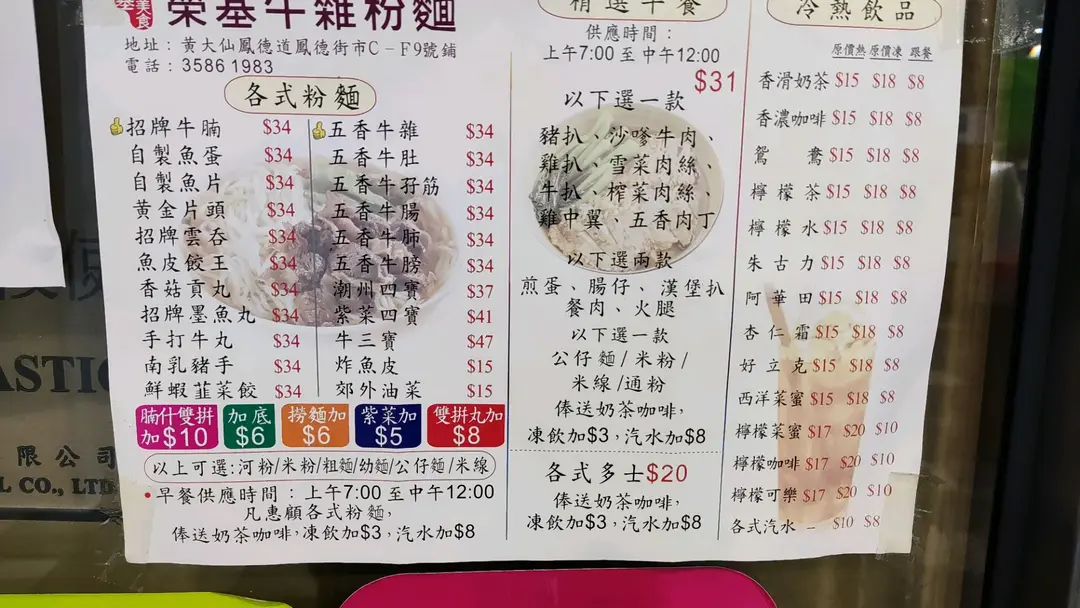 榮基牛雜粉麵
美食
地址：黃大仙鳳德道鳳德街市C－F9號鋪
電話：3586 1983
各式粉麵
招牌牛腩 $34
自製魚蛋 $34
自製魚片 $34
黃金片頭 $34
招牌雲吞 $34
魚皮餃王 $34
香菇貢丸 $34
招牌墨魚丸 $34
手打牛丸 $34
南乳豬手 $34
鮮蝦韮菜餃 $34
五香牛雜 $34
五香牛肚 $34
五香牛孖筋 $34
五香牛腸 $34
五香牛肺 $34
五香牛膀 $34
潮州四寶 $37
紫菜四寶 $41
牛三寶 $47
炸魚皮 $15
郊外油菜 $15
腩什雙拼
加$10
加底
$6
撈麵加
$6
紫菜加
$5
雙拼丸加
$8
以上可選:河粉/米粉/粗麵/幼麵/公仔麵/米線
•早餐供應時間：上午7:00 至中午12:00
凡惠顧各式粉麵，
俸送奶茶咖啡,凍飲加$3，汽水加$8
精選早餐
供應時間：
上午7:00 至 中午12:00
$31
以下選一款
豬扒、沙嗲牛肉、
雞扒、雪菜肉絲、
牛扒、榨菜肉絲、
雞中翼、五香肉丁
以下選兩款
煎蛋、腸仔、漢堡扒
餐肉、火腿
以下選一款
公仔麵/米粉/
米線/通粉
俸送奶茶咖啡，
凍飲加$3，汽水加$8
各式多士$20
俸送奶茶咖啡，
凍飲加$3，汽水加$8
冷熱飲品
原價熱 原價凍 跟餐
香滑奶茶 $15 $18 $8
香濃咖啡 $15 $18 $8
鴛鴦 $15 $18 $8
檸檬茶 $15 $18 $8
檸檬水 $15 $18 $8
朱古力 $15 $18 $8
阿華田 $15 $18 $8
杏仁霜 $15 $18 $8
好立克 $15 $18 $8
西洋菜蜜 $15 $18 $8
檸檬菜蜜 $17 $20 $10
檸檬咖啡 $17 $20 $10
檸檬可樂 $17 $20 $10
各式汽水 – $10 $8
限公司
L CO., LTD